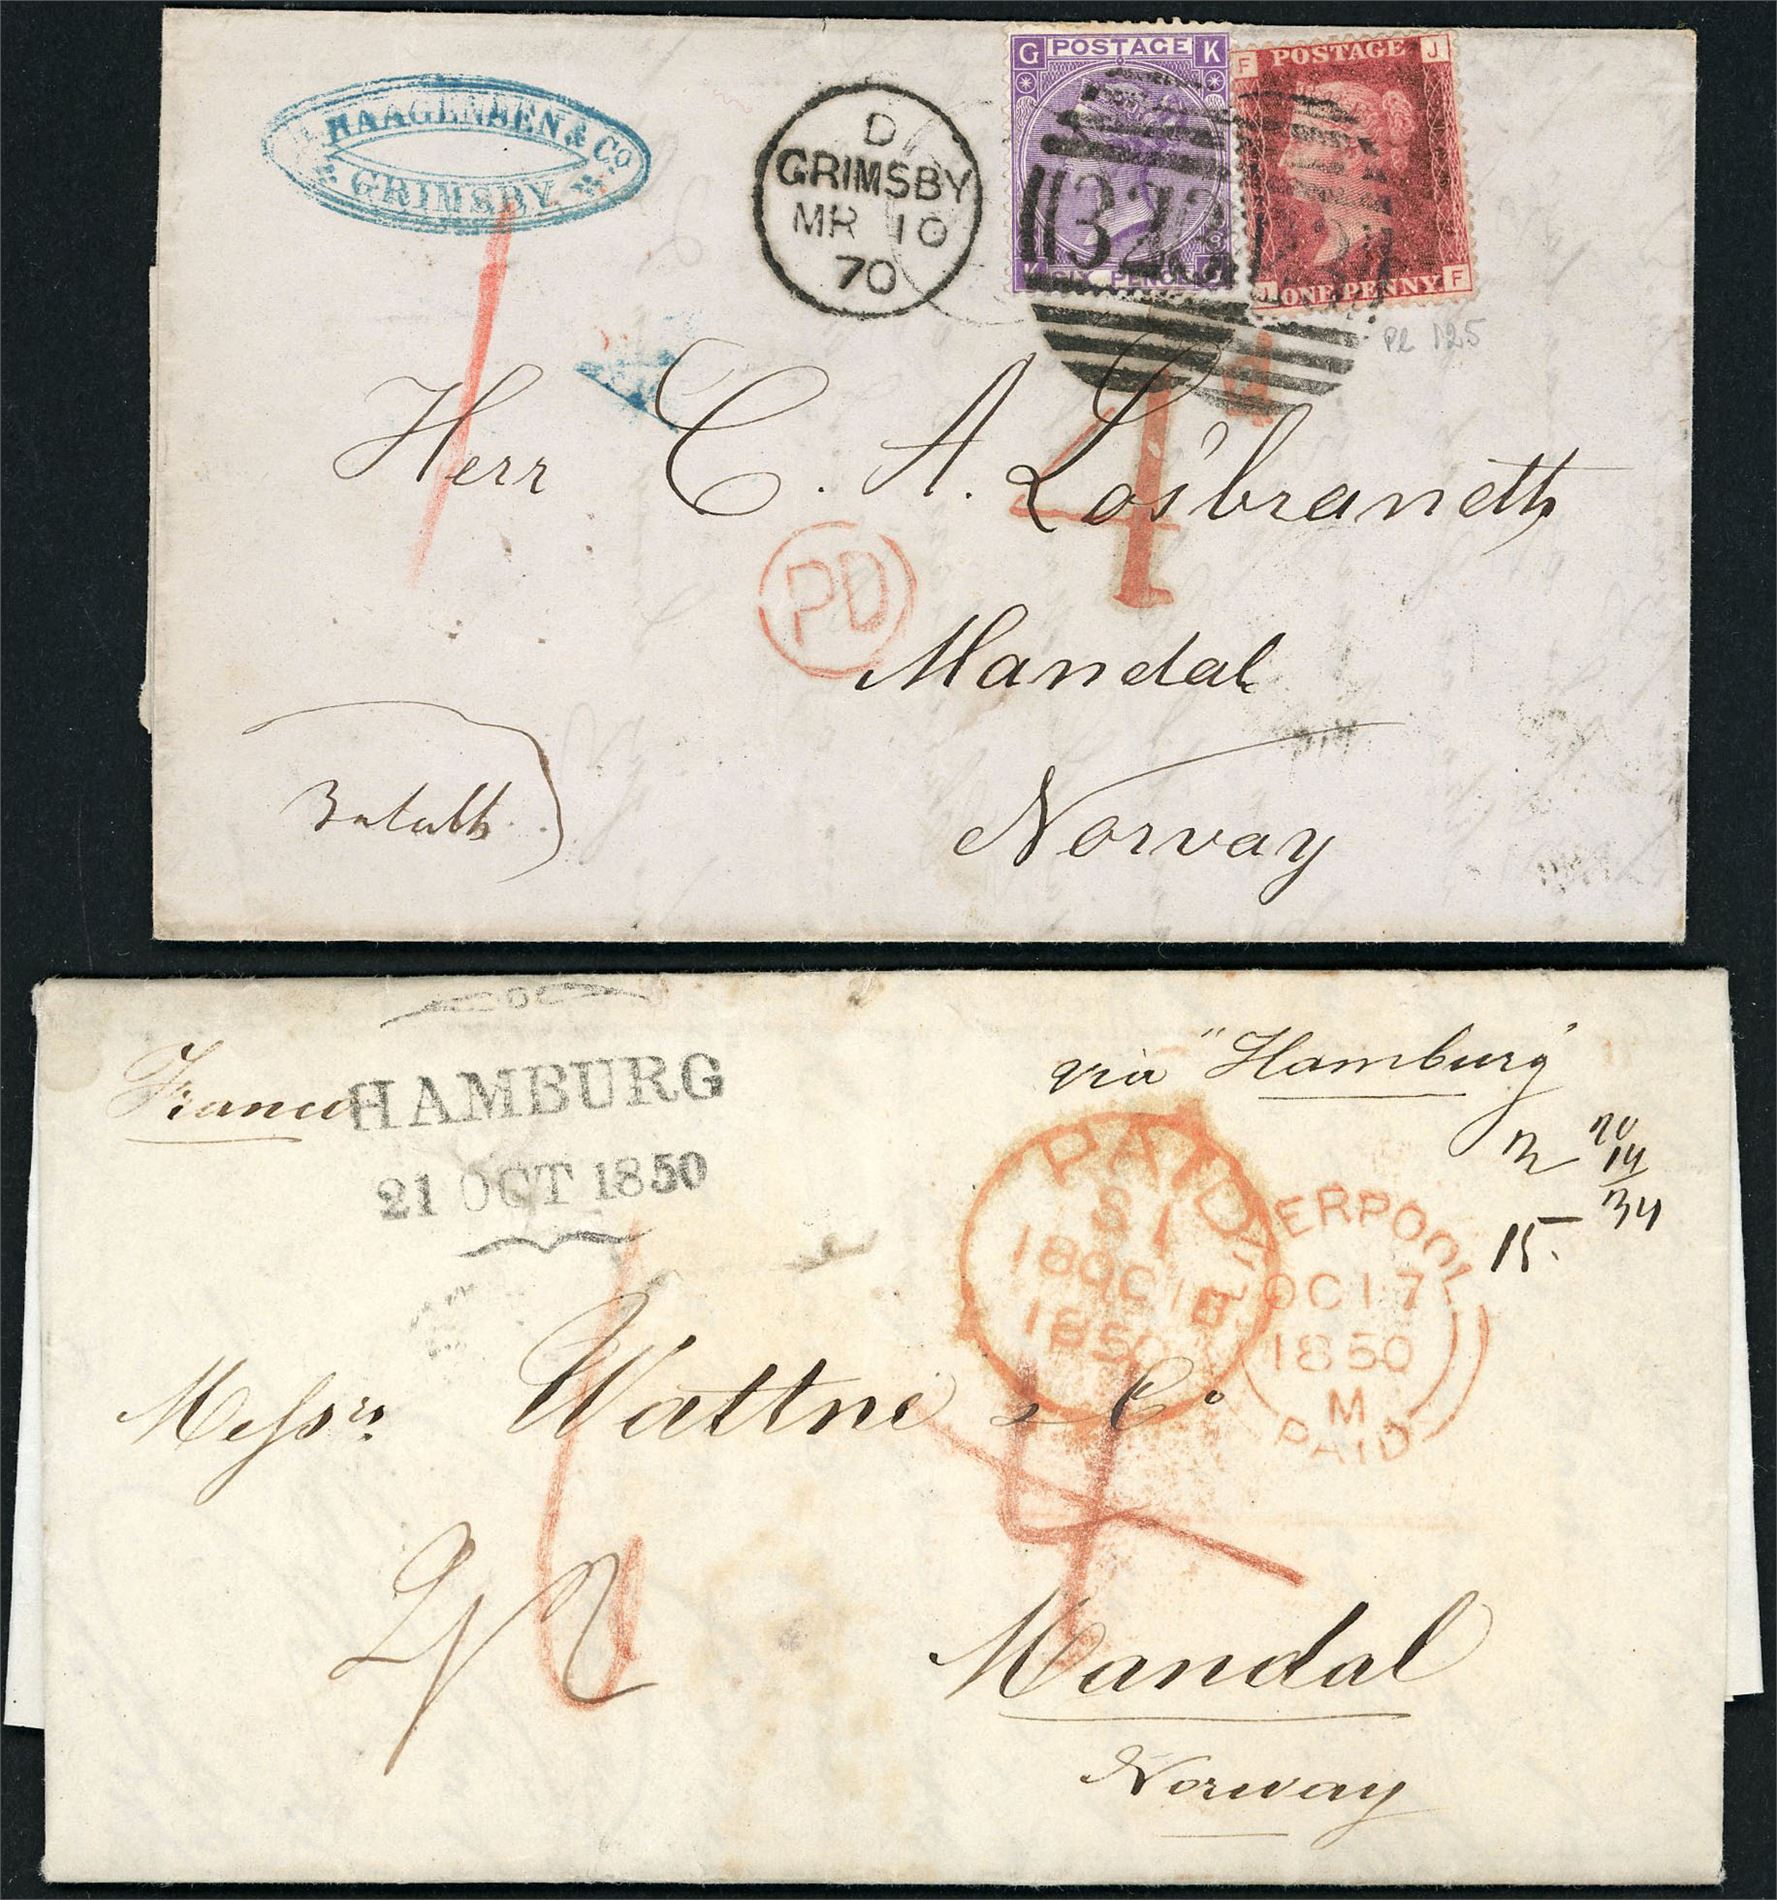 HAAGENSEN & Co
GRIMSBY
D
GRIMSBY
MR 10
70
G POSTAGE K
K SIX PENCE G
322
F POSTAGE J
J ONE PENNY F
Pl 125
4
Herr C. A.
PD
Mandal
Norway
Franco
HAMBURG
21 OCT 1850
via "Hamburg"
20
14
34
15
PAID
18 OC 18
1850
LIVERPOOL
OC 17
1850
M
PAID
Messrs Wattne & Co
Mandal
Norway